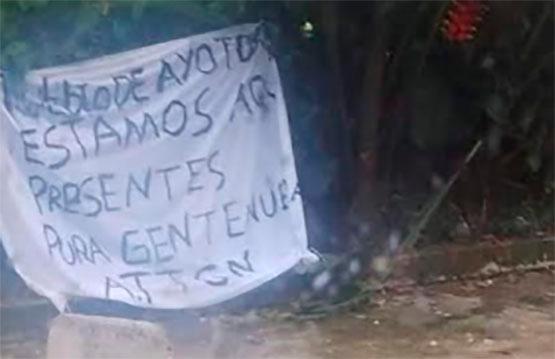 PUEBLO DE AYOTOX
ESTAMOS AQ
PRESENTES
PURA GENTE NUEBA
ATT GN